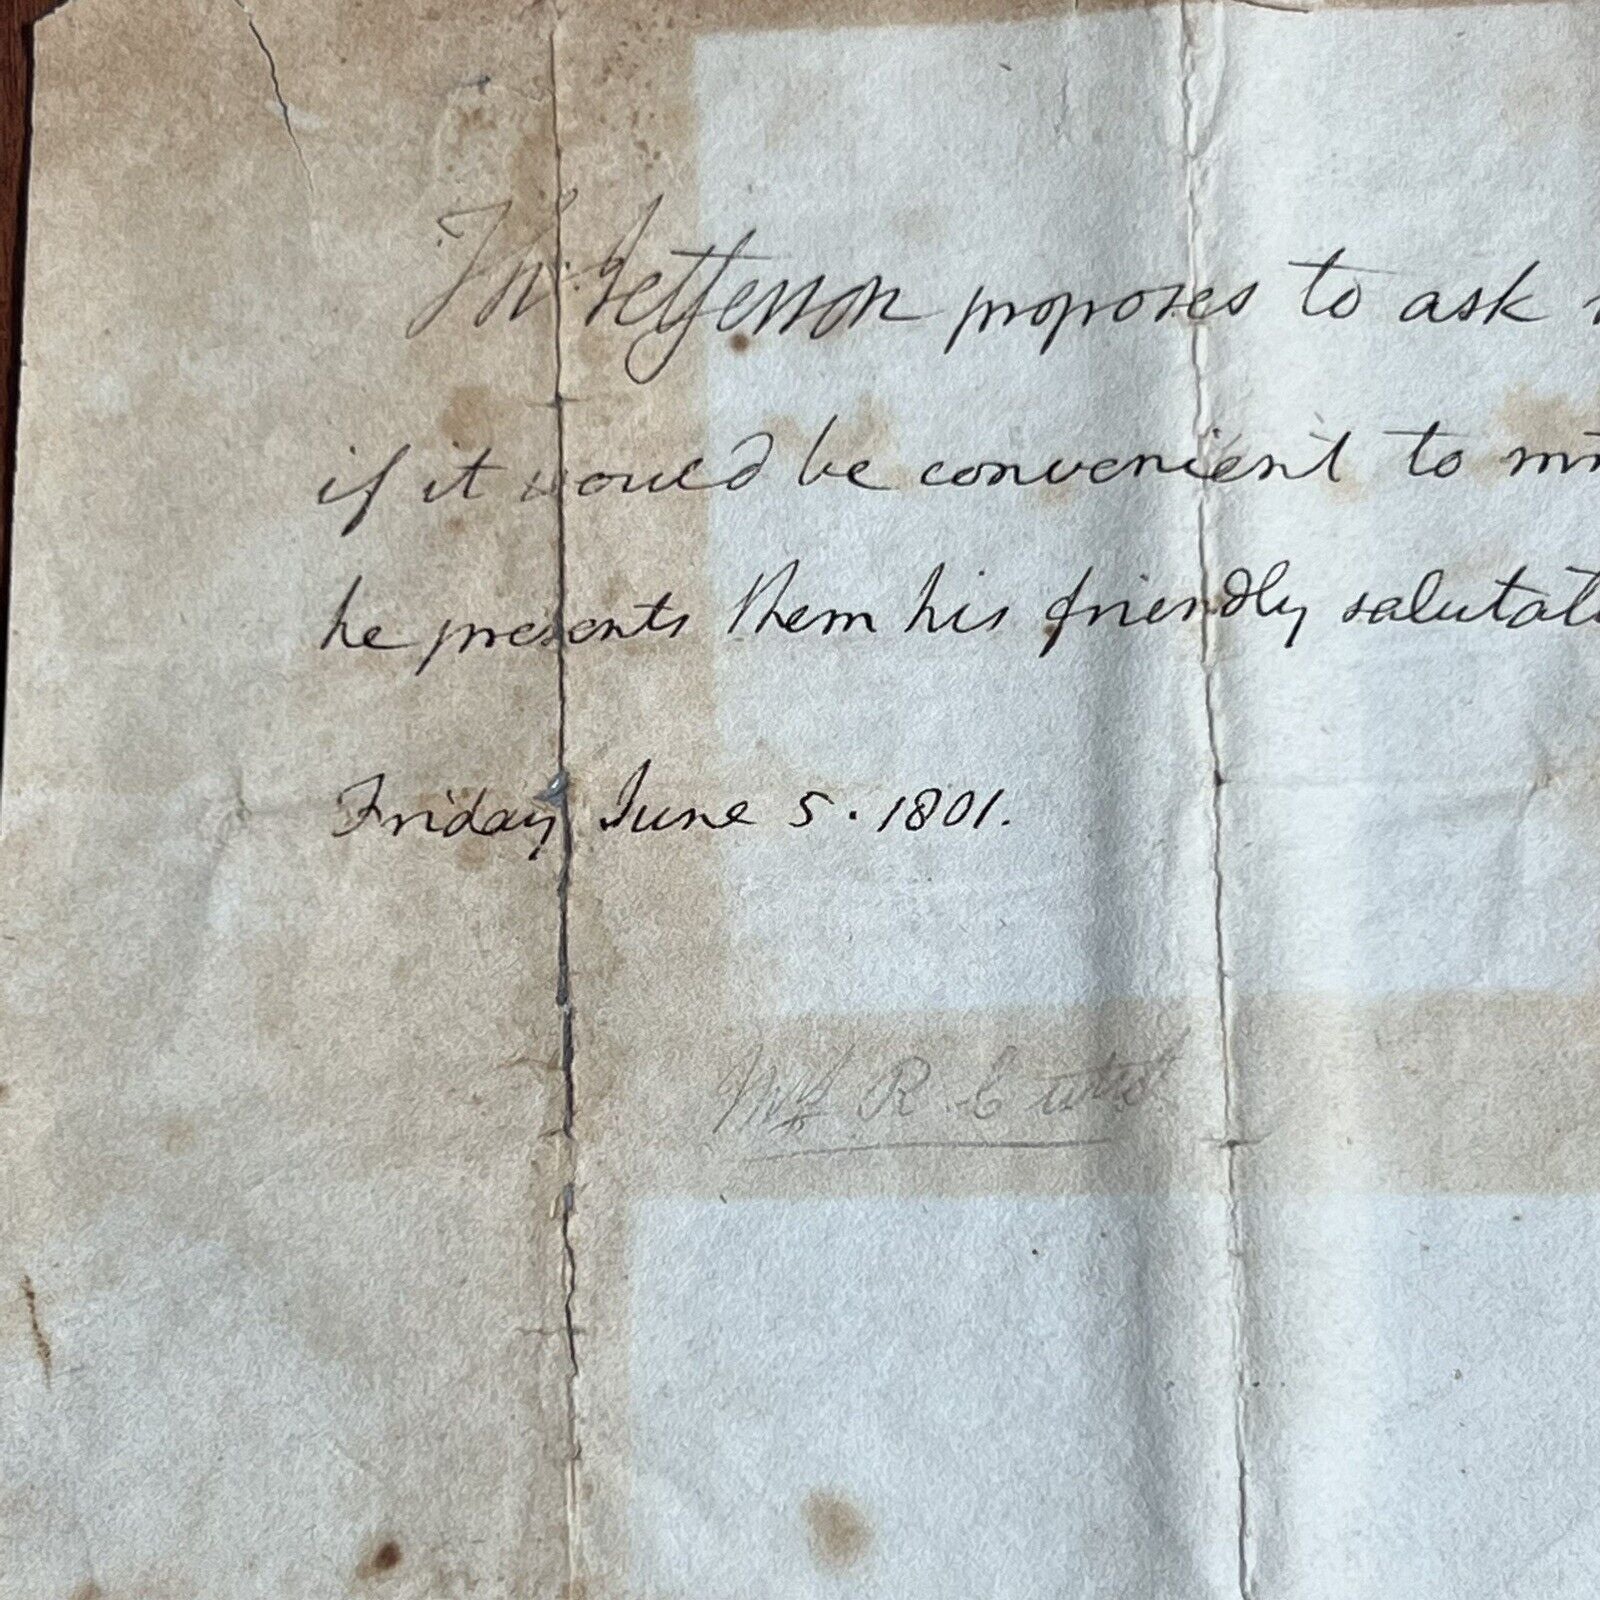 Th: Jefferson proposes to ask
if it would be convenient to
he presents them his friendly salutati
Friday June 5. 1801.
R.